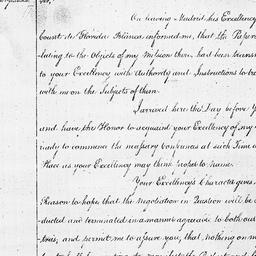 Sir,
On leaving Madrid his Excellency
Count de Florida Blanca informed me, that the Papers
lating to the Objects of my Mission there had been transm
to your Excellency with Authority and Instructions to tre
with me on the Subjects of them.
I arrived here the Day before y
and have the Honor to acquaint your Excellency of my
ready to commence the necessary Conferences at such Time a
Place as your Excellency may think proper to name.
Your Excellency's Character gives
Reason to hope, that the Negotiation in Question will be c
ducted and terminated in a manner agreeable to both our
and permit me to assure you, that nothing on m